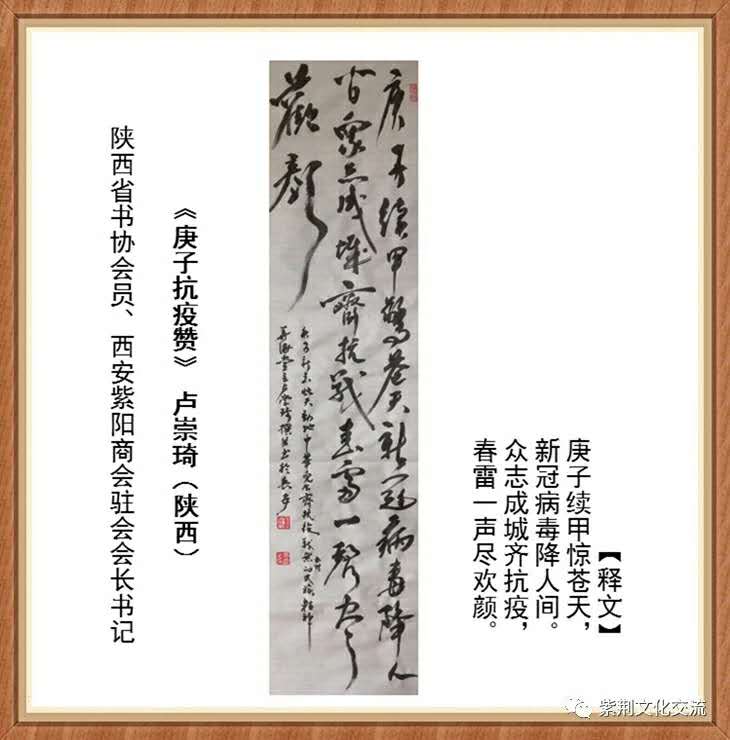 【释文】
庚子续甲惊苍天，
新冠病毒降人间。
众志成城齐抗疫，
春雷一声尽欢颜。
庚子续甲驚苍天新冠病毒降人
间眾志成城齊抗戰春雷一聲尽
歡顏
《庚子抗疫赞》 卢崇琦（陕西）
陕西省书协会员、西安紫阳商会驻会会长书记
紫荆文化交流